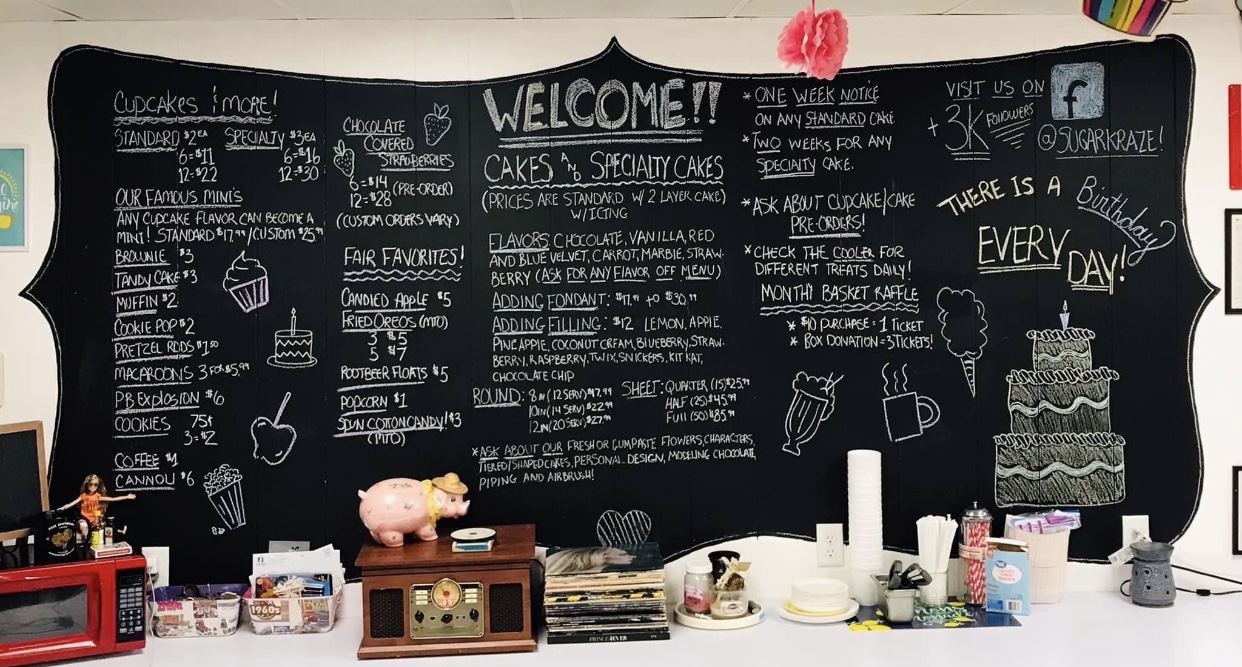 CUPCAKES & MORE!
STANDARD $2EA SPECIALTY $3EA
6=$11 6=$16
12=$22 12=$30
OUR FAMOUS MINI'S
ANY CUPCAKE FLAVOR CAN BECOME A
MINI! STANDARD $17.99/CUSTOM $25.99
BROWNIE $3
TANDY CAKE $3
MUFFIN $2
COOKIE POP $2
PRETZEL RODS $1.50
MACAROONS 3 FOR $5.99
PB EXPLOSION $6
COOKIES 75¢
3=$2
COFFEE $1
CANNOLI $6
CHOCOLATE
COVERED
STRAWBERRIES
6=$14 (PRE-ORDER)
12=$28
(CUSTOM ORDERS VARY)
FAIR FAVORITES!
CANDIED APPLE $5
FRIED OREOS (MTO)
3 $5
5 $7
ROOTBEER FLOATS $5
POPCORN $1
SPUN COTTON CANDY! $3
(MTO)
WELCOME!!
CAKES AND SPECIALTY CAKES
(PRICES ARE STANDARD W/ 2 LAYER CAKE)
W/ICING
FLAVORS: CHOCOLATE, VANILLA, RED
AND BLUE VELVET, CARROT, MARBLE, STRAW-
BERRY (ASK FOR ANY FLAVOR OFF MENU)
ADDING FONDANT: $17.99 TO $30.99
ADDING FILLING: $12 LEMON, APPLE,
PINEAPPLE, COCONUT CREAM, BLUEBERRY, STRAW-
BERRY, RASPBERRY, TWIX, SNICKERS, KIT KAT,
CHOCOLATE CHIP
ROUND: 8IN (12 SERV) $17.99
10IN (14 SERV) $22.99
12IN (20 SERV) $27.99
SHEET: QUARTER (15) $25.99
HALF (25) $45.99
FULL (50) $85.99
*ASK ABOUT OUR FRESH OR GUMPASTE FLOWERS, CHARACTERS,
TIERED/SHAPED CAKES, PERSONAL DESIGN, MODELING CHOCOLATE,
PIPING AND AIRBRUSH!
* ONE WEEK NOTICE
ON ANY STANDARD CAKE
* TWO WEEKS FOR ANY
SPECIALTY CAKE.
*ASK ABOUT CUPCAKE/CAKE
PRE-ORDERS!
*CHECK THE COOLER FOR
DIFFERENT TREATS DAILY!
MONTHLY BASKET RAFFLE
* $10 PURCHASE = 1 TICKET
* BOX DONATION = 3 TICKETS!
VISIT US ON f
+3K FOLLOWERS
@SUGARKRAZE!
THERE IS A Birthday
EVERY DAY!
1960s